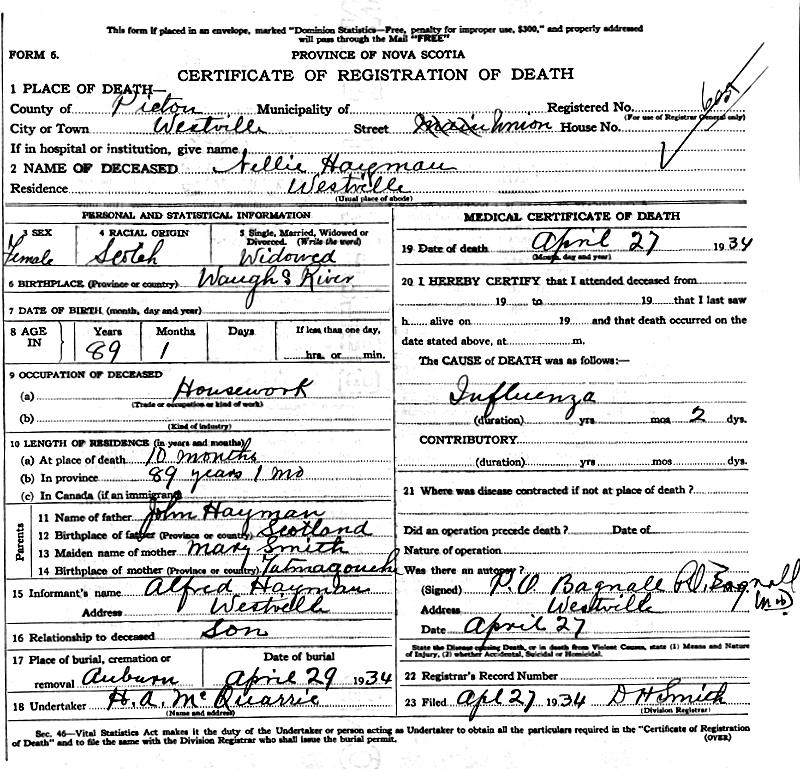 This form if placed in an envelope, marked "Dominion Statistics—Free, penalty for improper use, $300," and properly addressed
will pass through the Mail "FREE"
FORM 6. PROVINCE OF NOVA SCOTIA
CERTIFICATE OF REGISTRATION OF DEATH
1 PLACE OF DEATH—
County of Pictou Municipality of Registered No. 605
(For use of Registrar General only)
City or Town Westville Street Union House No.
If in hospital or institution, give name
2 NAME OF DECEASED Nellie Haygman
Residence Westville
(Usual place of abode)
PERSONAL AND STATISTICAL INFORMATION
3 SEX 4 RACIAL ORIGIN 5 Single, Married, Widowed or Divorced. (Write the word)
Female Scotch Widowed
6 BIRTHPLACE (Province or country) Waugh's River
7 DATE OF BIRTH (month, day and year)
8 AGE IN Years Months Days If less than one day,
89 1 hrs. or min.
9 OCCUPATION OF DECEASED
(a) Housework
(Trade or occupation or kind of work)
(b)
(Kind of industry)
10 LENGTH OF RESIDENCE (in years and months)
(a) At place of death 10 months
(b) In province 89 years 1 mo
(c) In Canada (if an immigrant)
Parents
11 Name of father John Hayman
12 Birthplace of father (Province or country) Scotland
13 Maiden name of mother Mary Smith
14 Birthplace of mother (Province or country) Tatmagouche
15 Informant's name Alfred Hayman
Address Westville
16 Relationship to deceased Son
17 Place of burial, cremation or removal Auburn Date of burial April 29 1934
18 Undertaker H. A. McQuarrie
(Name and address)
MEDICAL CERTIFICATE OF DEATH
19 Date of death April 27 1934
(Month, day and year)
20 I HEREBY CERTIFY that I attended deceased from
19 to 19 that I last saw
h alive on 19 and that death occurred on the
date stated above, at m.
The CAUSE of DEATH was as follows:—
Influenza
(duration) yrs mos 2 dys.
CONTRIBUTORY
(duration) yrs mos dys.
21 Where was disease contracted if not at place of death?
Did an operation precede death? Date of
Nature of operation
Was there an autopsy?
(Signed) P.O. Bagnall P.O. Bagnall
Address Westville (M.D)
Date April 27
State the Disease causing Death, or in death from Violent Causes, state (1) Means and Nature
of Injury, (2) whether Accidental, Suicidal or Homicidal.
22 Registrar's Record Number
23 Filed Apl 27 1934 D H Smith
(Division Registrar)
Sec. 46—Vital Statistics Act makes it the duty of the Undertaker or person acting as Undertaker to obtain all the particulars required in the "Certificate of Registration
of Death" and to file the same with the Division Registrar who shall issue the burial permit. (OVER)